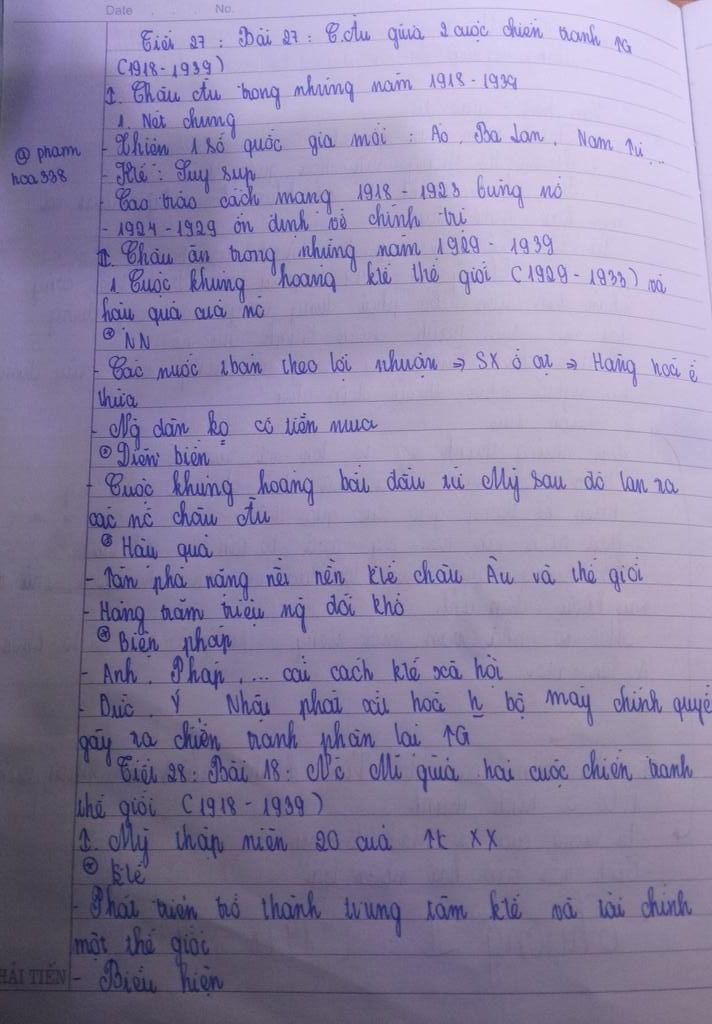 Date . . . No.
Tiết 27 : Bài 27 : C.Âu giữa 2 cuộc chiến tranh TG
(1918 - 1939)
I. Châu Âu trong những năm 1918 - 1939
1. Nét chung
@ pham hoa 338
- Xhiện 1 số quốc gia mới : Áo, Ba Lan, Nam Tư,...
- Ktế : Suy sụp
- Cao trào cách mạng 1918 - 1923 bùng nổ
- 1924 - 1929 ổn định về chính trị
II. Châu âu trong những năm 1929 - 1939
1. Cuộc khủng hoảng ktế thế giới (1929 - 1933) và
hậu quả của nó
* NN
- Các nước tbản theo lợi nhuận => SX ồ ạt => Hàng hoá ế
thừa
- Ng dân ko có tiền mua
* Diễn biến
- Cuộc khủng hoảng bắt đầu từ Mỹ sau đó lan ra
các nc châu Âu
* Hậu quả
- Tàn phá nặng nề nền ktế châu Âu và thế giới
- Hàng trăm triệu ng đói khổ
* Biện pháp
- Anh, Pháp,... cải cách ktế xã hội
- Đức, Ý Nhật phát xít hoá h bộ máy chính quyề
gây ra chiến tranh phân lại TG
Tiết 28 : Bài 18 : Nc Mĩ giữa hai cuộc chiến tranh
thế giới (1918 - 1939)
I. Mỹ thập niên 20 của TK XX
* Ktế
- Phát triển trở thành trung tâm ktế và tài chính
một thế giới
HẢI TIẾN
- Biểu hiện